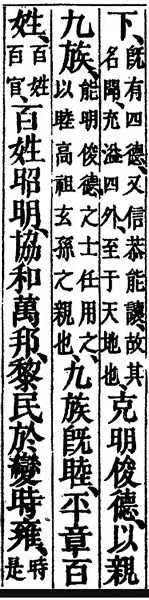 下、旣有四德、又信恭能讓、故其名聞、充溢四外、至于天地也、克明俊德、以親
九族、能明俊德之士任用之、以睦高祖玄孫之親也、九族旣睦、平章百
姓、百姓百官、百姓昭明、協和萬邦、黎民於變時雍、時是